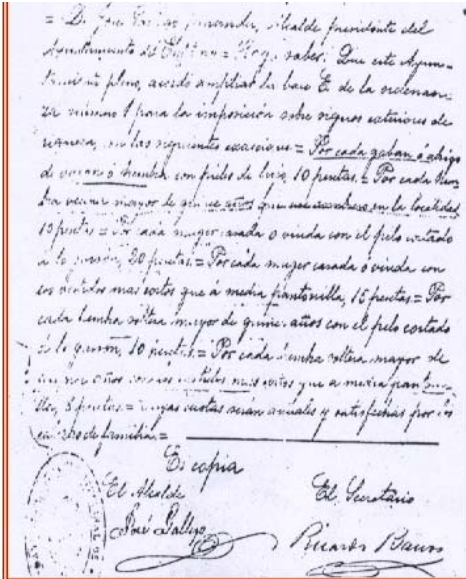 = D. José Gallego Fernandez, Alcalde presidente del
Ayuntamiento de = Hago saber: Que este Ayun-
tamiento pleno, acordó ampliar la base E. de la ordenan-
za número 1 para la imposición sobre signos exteriores de
riqueza, en las siguientes exacciones = Por cada gaban ó abrigo
de varon ó hembra con pieles de lujo, 10 pesetas. = Por cada hem-
bra mayor de años que en la localidad,
15 pesetas = Por cada muger casada o viuda con el pelo cortado
a lo garson, 20 pesetas. = Por cada muger casada ó viuda con
los vestidos mas cortos que á media pantorrilla, 15 pesetas = Por
cada hembra soltera mayor de quince años con el pelo cortado
á lo garson, 10 pesetas. = Por cada hembra soltera mayor de
quince años con los vestidos mas cortos que a media pantorri-
lla, 8 pesetas. = cuyas cuotas serán anuales y satisfechas por los
de familia. =
Es copia
El Alcalde
El Secretario
José Gallego
Ricardo